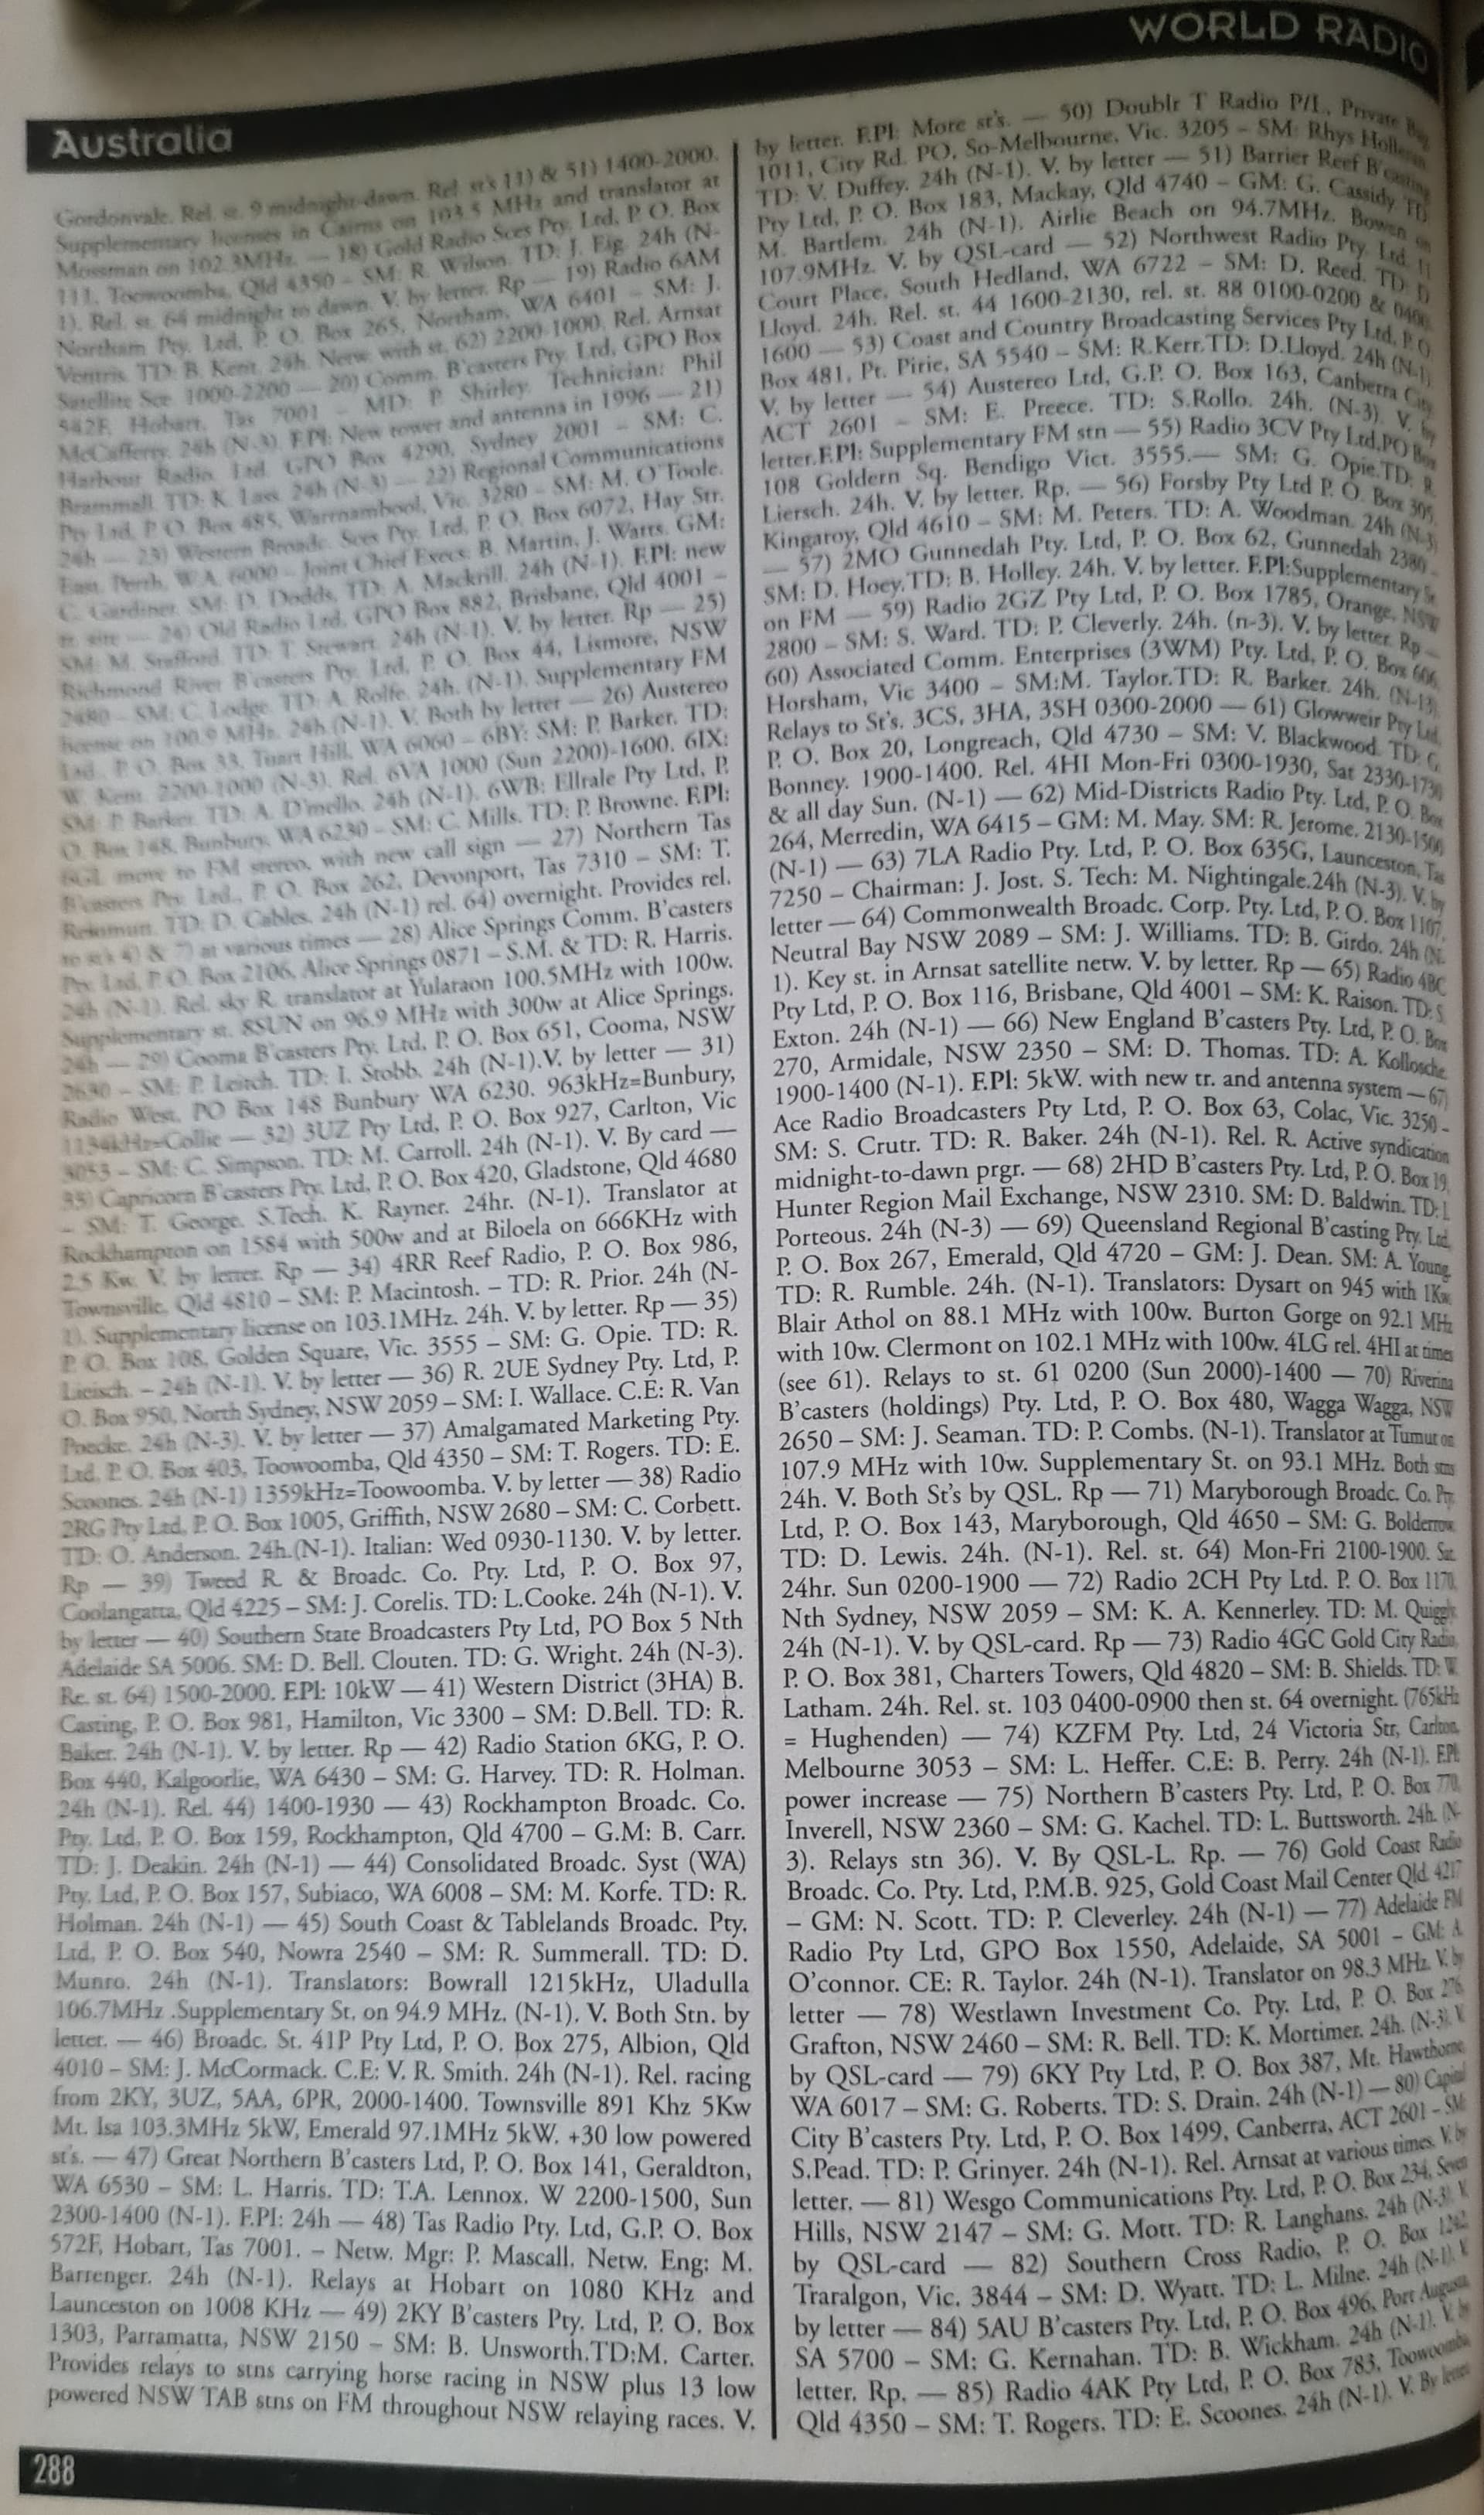 WORLD RADIO
Australia
Gordonvale. Rel. st. 9 midnight-dawn. Rel. st's 11) & 51) 1400-2000.
Supplementary licenses in Cairns on 103.5 MHz and translator at
Mossman on 102.3MHz. — 18) Gold Radio Sces Pty. Ltd, P. O. Box
111, Toowoomba, Qld 4350 – SM: R. Wilson. TD: J. Eig. 24h (N-
1). Rel. st. 64 midnight to dawn. V. by letter. Rp — 19) Radio 6AM
Northam Pty. Ltd, P. O. Box 265, Northam, WA 6401 – SM: J.
Ventris. TD: B. Kent. 24h. Netw with st. 62) 2200-1000. Rel. Arnsat
Satellite Sce. 1000-2200 — 20) Comm. B'casters Pty. Ltd, GPO Box
542F, Hobart, Tas 7001 – MD: P. Shirley. Technician: Phil
McCafferty. 24h (N-3). F.PI: New tower and antenna in 1996 — 21)
Harbour Radio. Ltd. GPO Box 4290, Sydney 2001 – SM: C.
Brammall. TD: K. Lass. 24h (N-3) — 22) Regional Communications
Pty Ltd, P. O. Box 485, Warrnambool, Vic. 3280 – SM: M. O'Toole.
24h — 23) Western Broadc. Sces Pty. Ltd, P. O. Box 6072, Hay Str.
East. Perth, W.A. 6000 – Joint Chief Execs. B. Martin, J. Watts. GM:
C. Gardiner. SM: D. Dodds, TD: A. Mackrill. 24h (N-1). F.PI: new
tr. site — 24) Old Radio Ltd, GPO Box 882, Brisbane, Qld 4001 –
SM: M. Stafford. TD: T. Stewart. 24h (N-1). V. by letter. Rp — 25)
Richmond River B'casters Pty. Ltd, P. O. Box 44, Lismore, NSW
2480 – SM: C. Lodge. TD: A. Rolfe. 24h. (N-1). Supplementary FM
license on 100.9 MHz. 24h (N-1). V. Both by letter — 26) Austereo
Ltd., P. O. Box 33, Tuart Hill, WA 6060 – 6BY: SM: P. Barker. TD:
W. Kent. 2200-1000 (N-3). Rel. 6VA 1000 (Sun 2200)-1600. 6IX:
SM: P. Barker. TD: A. D'mello. 24h (N-1). 6WB: Ellrale Pty Ltd, P.
O. Box 148, Bunbury, WA 6230 – SM: C. Mills. TD: P. Browne. F.PI:
6GL move to FM stereo, with new call sign — 27) Northern Tas
B'casters Pty. Ltd., P. O. Box 262, Devonport, Tas 7310 – SM: T.
TD: D. Cables. 24h (N-1) rel. 64) overnight. Provides rel.
to st's 4) & 7) at various times — 28) Alice Springs Comm. B'casters
Pty. Ltd, P. O. Box 2106, Alice Springs 0871 – S.M. & TD: R. Harris.
24h (N-1). Rel. sky R. translator at Yularaon 100.5MHz with 100w.
Supplementary st. 8SUN on 96.9 MHz with 300w at Alice Springs.
24h — 29) Cooma B'casters Pty. Ltd, P. O. Box 651, Cooma, NSW
2630 – SM: P. Leitch. TD: I. Stobb. 24h (N-1).V. by letter — 31)
Radio West, PO Box 148 Bunbury WA 6230. 963kHz=Bunbury,
1134kHz=Collie — 32) 3UZ Pty Ltd, P. O. Box 927, Carlton, Vic
3053 – SM: C. Simpson. TD: M. Carroll. 24h (N-1). V. By card —
33) Capricorn B'casters Pty. Ltd, P. O. Box 420, Gladstone, Qld 4680
– SM: T. George. S.Tech. K. Rayner. 24hr. (N-1). Translator at
Rockhampton on 1584 with 500w and at Biloela on 666KHz with
2.5 Kw. V. by letter. Rp — 34) 4RR Reef Radio, P. O. Box 986,
Townsville, Qld 4810 – SM: P. Macintosh. – TD: R. Prior. 24h (N-
1). Supplementary license on 103.1MHz. 24h. V. by letter. Rp — 35)
P. O. Box 108, Golden Square, Vic. 3555 – SM: G. Opie. TD: R.
Lieisch. – 24h (N-1). V. by letter — 36) R. 2UE Sydney Pty. Ltd, P.
O. Box 950, North Sydney, NSW 2059 – SM: I. Wallace. C.E: R. Van
Poecke. 24h (N-3). V. by letter — 37) Amalgamated Marketing Pty.
Ltd, P. O. Box 403, Toowoomba, Qld 4350 – SM: T. Rogers. TD: E.
Scoones. 24h (N-1) 1359kHz=Toowoomba. V. by letter — 38) Radio
2RG Pty Ltd, P. O. Box 1005, Griffith, NSW 2680 – SM: C. Corbett.
TD: O. Anderson. 24h.(N-1). Italian: Wed 0930-1130. V. by letter.
Rp — 39) Tweed R. & Broadc. Co. Pty. Ltd, P. O. Box 97,
Coolangatta, Qld 4225 – SM: J. Corelis. TD: L.Cooke. 24h (N-1). V.
by letter — 40) Southern State Broadcasters Pty Ltd, PO Box 5 Nth
Adelaide SA 5006. SM: D. Bell. Clouten. TD: G. Wright. 24h (N-3).
Re. st. 64) 1500-2000. F.PI: 10kW — 41) Western District (3HA) B.
Casting, P. O. Box 981, Hamilton, Vic 3300 – SM: D.Bell. TD: R.
Baker. 24h (N-1). V. by letter. Rp — 42) Radio Station 6KG, P. O.
Box 440, Kalgoorlie, WA 6430 – SM: G. Harvey. TD: R. Holman.
24h (N-1). Rel. 44) 1400-1930 — 43) Rockhampton Broadc. Co.
Pty. Ltd, P. O. Box 159, Rockhampton, Qld 4700 – G.M: B. Carr.
TD: J. Deakin. 24h (N-1) — 44) Consolidated Broadc. Syst (WA)
Pty. Ltd, P. O. Box 157, Subiaco, WA 6008 – SM: M. Korfe. TD: R.
Holman. 24h (N-1) — 45) South Coast & Tablelands Broadc. Pty.
Ltd, P. O. Box 540, Nowra 2540 – SM: R. Summerall. TD: D.
Munro. 24h (N-1). Translators: Bowrall 1215kHz, Uladulla
106.7MHz .Supplementary St. on 94.9 MHz. (N-1). V. Both Stn. by
letter. — 46) Broadc. St. 41P Pty Ltd, P. O. Box 275, Albion, Qld
4010 – SM: J. McCormack. C.E: V. R. Smith. 24h (N-1). Rel. racing
from 2KY, 3UZ, 5AA, 6PR, 2000-1400. Townsville 891 Khz 5Kw
Mt. Isa 103.3MHz 5kW, Emerald 97.1MHz 5kW. +30 low powered
st's. — 47) Great Northern B'casters Ltd, P. O. Box 141, Geraldton,
WA 6530 – SM: L. Harris. TD: T.A. Lennox. W 2200-1500, Sun
2300-1400 (N-1). F.PI: 24h — 48) Tas Radio Pty. Ltd, G.P. O. Box
572F, Hobart, Tas 7001. – Netw. Mgr: P. Mascall. Netw. Eng: M.
Barrenger. 24h (N-1). Relays at Hobart on 1080 KHz and
Launceston on 1008 KHz — 49) 2KY B'casters Pty. Ltd, P. O. Box
1303, Parramatta, NSW 2150 – SM: B. Unsworth.TD:M. Carter.
Provides relays to stns carrying horse racing in NSW plus 13 low
powered NSW TAB stns on FM throughout NSW relaying races. V.
by letter. F.PI: More st's. — 50) Doublr T Radio P/L, Private Bag
1011, City Rd. PO, So-Melbourne, Vic. 3205 – SM: Rhys
TD: V. Duffey. 24h (N-1). V. by letter — 51) Barrier Reef B'casting
Pty Ltd, P. O. Box 183, Mackay, Qld 4740 – GM: G. Cassidy. TD:
M. Bartlem. 24h (N-1). Airlie Beach on 94.7MHz. Bowen on
107.9MHz. V. by QSL-card — 52) Northwest Radio Pty. Ltd. 11
Court Place, South Hedland, WA 6722 – SM: D. Reed. TD: D
Lloyd. 24h. Rel. st. 44 1600-2130, rel. st. 88 0100-0200 & 0400
1600 — 53) Coast and Country Broadcasting Services Pty Ltd, P. O.
Box 481, Pt. Pirie, SA 5540 – SM: R.Kerr.TD: D.Lloyd. 24h (N-1).
V. by letter — 54) Austereo Ltd, G.P. O. Box 163, Canberra City
ACT 2601 – SM: E. Preece. TD: S.Rollo. 24h. (N-3). V. by
letter.F.PI: Supplementary FM stn — 55) Radio 3CV Pty Ltd,PO Box
108 Goldern Sq. Bendigo Vict. 3555.— SM: G. Opie.TD: R.
Liersch. 24h. V. by letter. Rp. — 56) Forsby Pty Ltd P. O. Box 305,
Kingaroy, Qld 4610 – SM: M. Peters. TD: A. Woodman. 24h (N-3)
— 57) 2MO Gunnedah Pty. Ltd, P. O. Box 62, Gunnedah 2380 –
SM: D. Hoey.TD: B. Holley. 24h. V. by letter. F.PI:Supplementary St.
on FM — 59) Radio 2GZ Pty Ltd, P. O. Box 1785, Orange, NSW
2800 – SM: S. Ward. TD: P. Cleverly. 24h. (n-3). V. by letter. Rp —
60) Associated Comm. Enterprises (3WM) Pty. Ltd, P. O. Box 606,
Horsham, Vic 3400 – SM:M. Taylor.TD: R. Barker. 24h. (N-13).
Relays to St's. 3CS, 3HA, 3SH 0300-2000 — 61) Glowweir Pty Ltd,
P. O. Box 20, Longreach, Qld 4730 – SM: V. Blackwood. TD: G.
Bonney. 1900-1400. Rel. 4HI Mon-Fri 0300-1930, Sat 2330-1730
& all day Sun. (N-1) — 62) Mid-Districts Radio Pty. Ltd, P. O. Box
264, Merredin, WA 6415 – GM: M. May. SM: R. Jerome. 2130-1500
(N-1) — 63) 7LA Radio Pty. Ltd, P. O. Box 635G, Launceston, Tas
7250 – Chairman: J. Jost. S. Tech: M. Nightingale.24h (N-3). V. by
letter — 64) Commonwealth Broadc. Corp. Pty. Ltd, P. O. Box 1107,
Neutral Bay NSW 2089 – SM: J. Williams. TD: B. Girdo. 24h (N-
1). Key st. in Arnsat satellite netw. V. by letter. Rp — 65) Radio 4BC
Pty Ltd, P. O. Box 116, Brisbane, Qld 4001 – SM: K. Raison. TD: S.
Exton. 24h (N-1) — 66) New England B'casters Pty. Ltd, P. O. Box
270, Armidale, NSW 2350 – SM: D. Thomas. TD: A. Kollosche.
1900-1400 (N-1). F.PI: 5kW. with new tr. and antenna system — 67)
Ace Radio Broadcasters Pty Ltd, P. O. Box 63, Colac, Vic. 3250 –
SM: S. Crutr. TD: R. Baker. 24h (N-1). Rel. R. Active syndication
midnight-to-dawn prgr. — 68) 2HD B'casters Pty. Ltd, P. O. Box 19,
Hunter Region Mail Exchange, NSW 2310. SM: D. Baldwin. TD: I.
Porteous. 24h (N-3) — 69) Queensland Regional B'casting Pty. Ltd.
P. O. Box 267, Emerald, Qld 4720 – GM: J. Dean. SM: A. Young.
TD: R. Rumble. 24h. (N-1). Translators: Dysart on 945 with 1Kw.
Blair Athol on 88.1 MHz with 100w. Burton Gorge on 92.1 MHz
with 10w. Clermont on 102.1 MHz with 100w. 4LG rel. 4HI at times
(see 61). Relays to st. 61 0200 (Sun 2000)-1400 — 70) Riverina
B'casters (holdings) Pty. Ltd, P. O. Box 480, Wagga Wagga, NSW
2650 – SM: J. Seaman. TD: P. Combs. (N-1). Translator at Tumut on
107.9 MHz with 10w. Supplementary St. on 93.1 MHz. Both stns
24h. V. Both St's by QSL. Rp — 71) Maryborough Broadc. Co. Pty.
Ltd, P. O. Box 143, Maryborough, Qld 4650 – SM: G. Bolderrow.
TD: D. Lewis. 24h. (N-1). Rel. st. 64) Mon-Fri 2100-1900. Sat.
24hr. Sun 0200-1900 — 72) Radio 2CH Pty Ltd. P. O. Box 1170,
Nth Sydney, NSW 2059 – SM: K. A. Kennerley. TD: M. Quiggly.
24h (N-1). V. by QSL-card. Rp — 73) Radio 4GC Gold City Radio,
P. O. Box 381, Charters Towers, Qld 4820 – SM: B. Shields. TD: W.
Latham. 24h. Rel. st. 103 0400-0900 then st. 64 overnight. (765kHz
= Hughenden) — 74) KZFM Pty. Ltd, 24 Victoria Str, Carlton,
Melbourne 3053 – SM: L. Heffer. C.E: B. Perry. 24h (N-1). F.PI:
power increase — 75) Northern B'casters Pty. Ltd, P. O. Box 770,
Inverell, NSW 2360 – SM: G. Kachel. TD: L. Buttsworth. 24h. (N-
3). Relays stn 36). V. By QSL-L. Rp. — 76) Gold Coast Radio
Broadc. Co. Pty. Ltd, P.M.B. 925, Gold Coast Mail Center Qld. 4217
– GM: N. Scott. TD: P. Cleverley. 24h (N-1) — 77) Adelaide FM
Radio Pty Ltd, GPO Box 1550, Adelaide, SA 5001 – GM: A.
O'connor. CE: R. Taylor. 24h (N-1). Translator on 98.3 MHz. V. by
letter — 78) Westlawn Investment Co. Pty. Ltd, P. O. Box 276,
Grafton, NSW 2460 – SM: R. Bell. TD: K. Mortimer. 24h. (N-3). V.
by QSL-card — 79) 6KY Pty Ltd, P. O. Box 387, Mt. Hawthorne
WA 6017 – SM: G. Roberts. TD: S. Drain. 24h (N-1) — 80) Capital
City B'casters Pty. Ltd, P. O. Box 1499, Canberra, ACT 2601 – SM:
S.Pead. TD: P. Grinyer. 24h (N-1). Rel. Arnsat at various times. V. by
letter. — 81) Wesgo Communications Pty. Ltd, P. O. Box 234, Seven
Hills, NSW 2147 – SM: G. Mott. TD: R. Langhans. 24h (N-3). V.
by QSL-card — 82) Southern Cross Radio, P. O. Box 1242
Traralgon, Vic. 3844 – SM: D. Wyatt. TD: L. Milne. 24h (N-1). V.
by letter — 84) 5AU B'casters Pty. Ltd, P. O. Box 496, Port Augusta
SA 5700 – SM: G. Kernahan. TD: B. Wickham. 24h (N-1). V. by
letter. Rp. — 85) Radio 4AK Pty Ltd, P. O. Box 783, Toowoomba
Qld 4350 – SM: T. Rogers. TD: E. Scoones. 24h (N-1). V. By letter
288